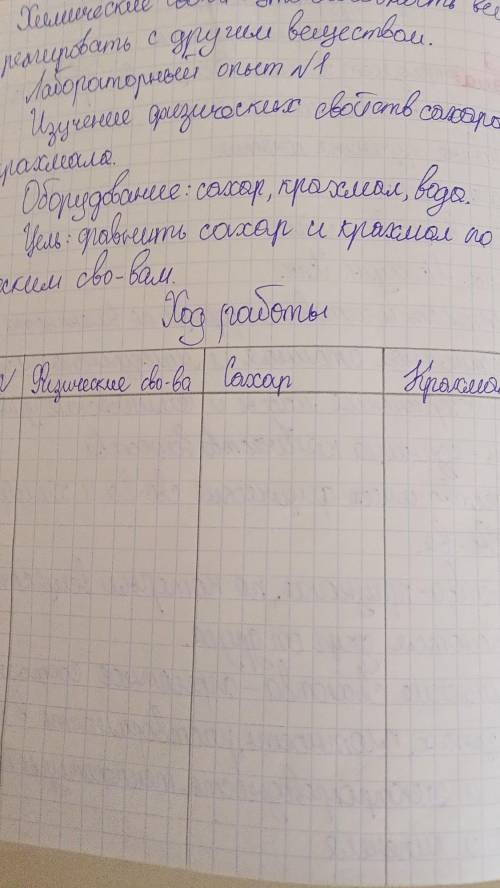 Химические
реагировать с другим веществом.
Лабораторный опыт №1
Изучение физических свойств сахара
крахмала.
Оборудование: сахар, крахмал, вода.
Цель: сравнить сахар и крахмал по
ским сво-вам.
Ход работы
№ Физические сво-ва Сахар Крахмал